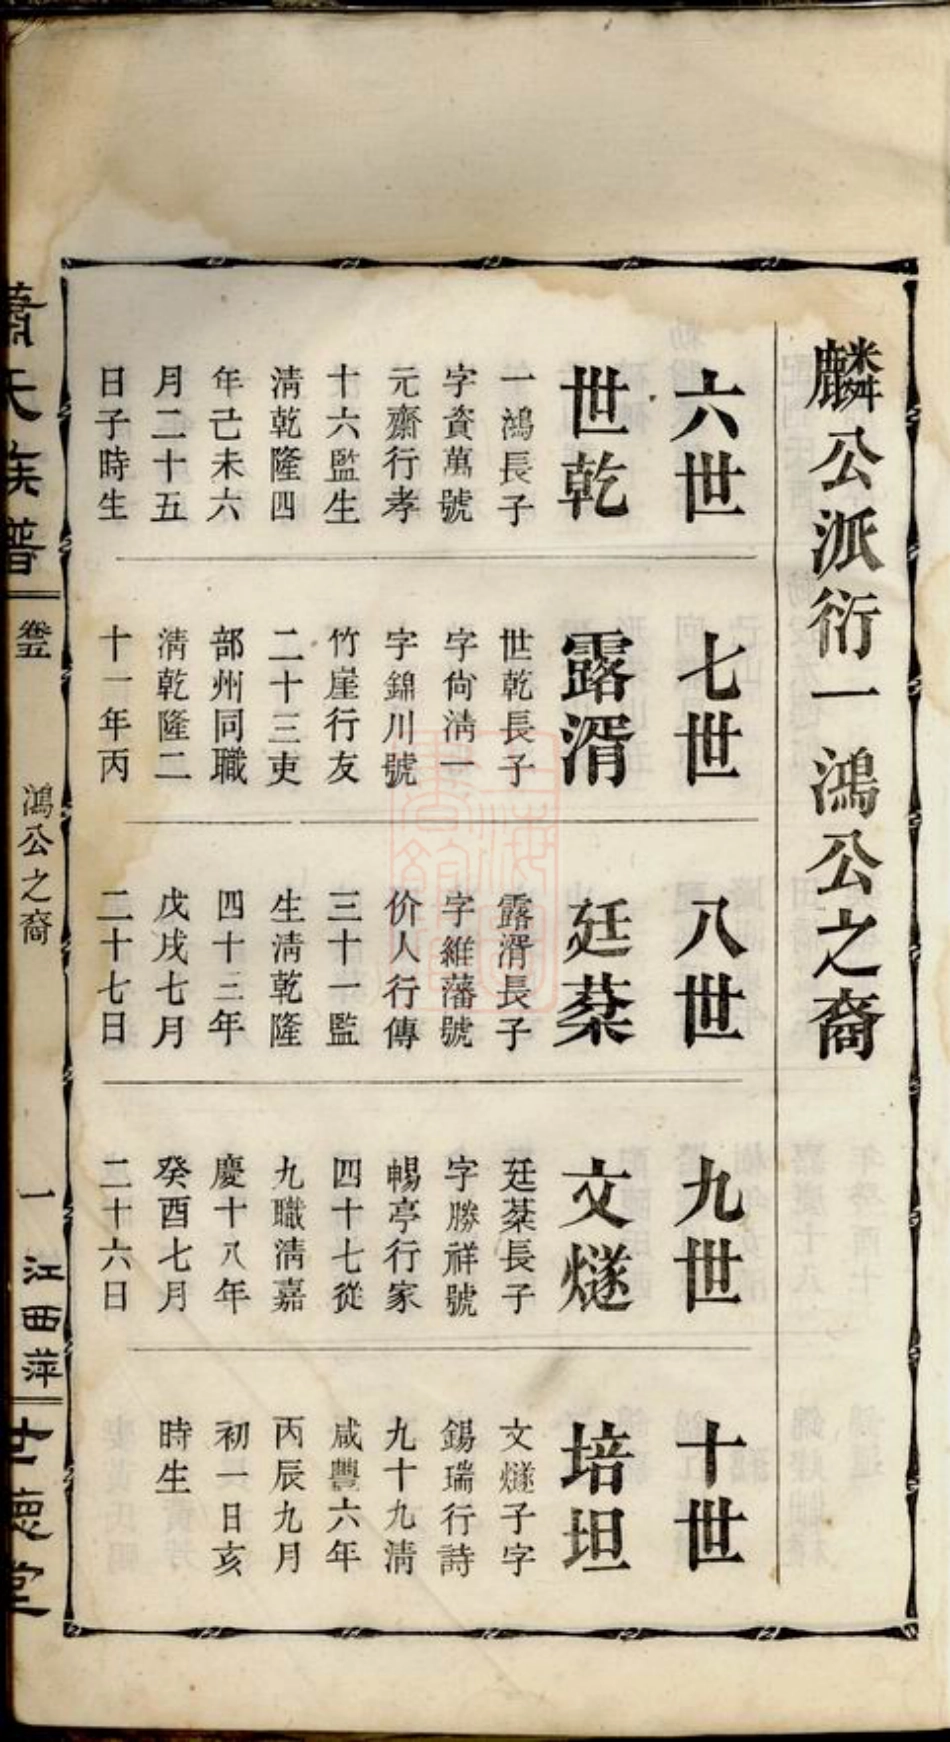 麟公派衍一鴻公之裔
六世
世乾
一鴻長子
字資萬號
元齋行孝
十六監生
清乾隆四
年己未六
月二十五
日子時生
七世
露湑
世乾長子
字尙清一
字錦川號
竹崖行友
二十三吏
部州同職
清乾隆二
十一年丙
八世
廷棻
露湑長子
字維藩號
价人行傳
三十一監
生清乾隆
四十三年
戊戌七月
二十七日
九世
文燧
廷棻長子
字勝祥號
暢亭行家
四十七從
九職清嘉
慶十八年
癸酉七月
二十六日
十世
培坦
文燧子字
錫瑞行詩
九十九清
咸豐六年
丙辰九月
初一日亥
時生
蕭氏族譜
卷五
鴻公之裔
一
江西萍
世德堂